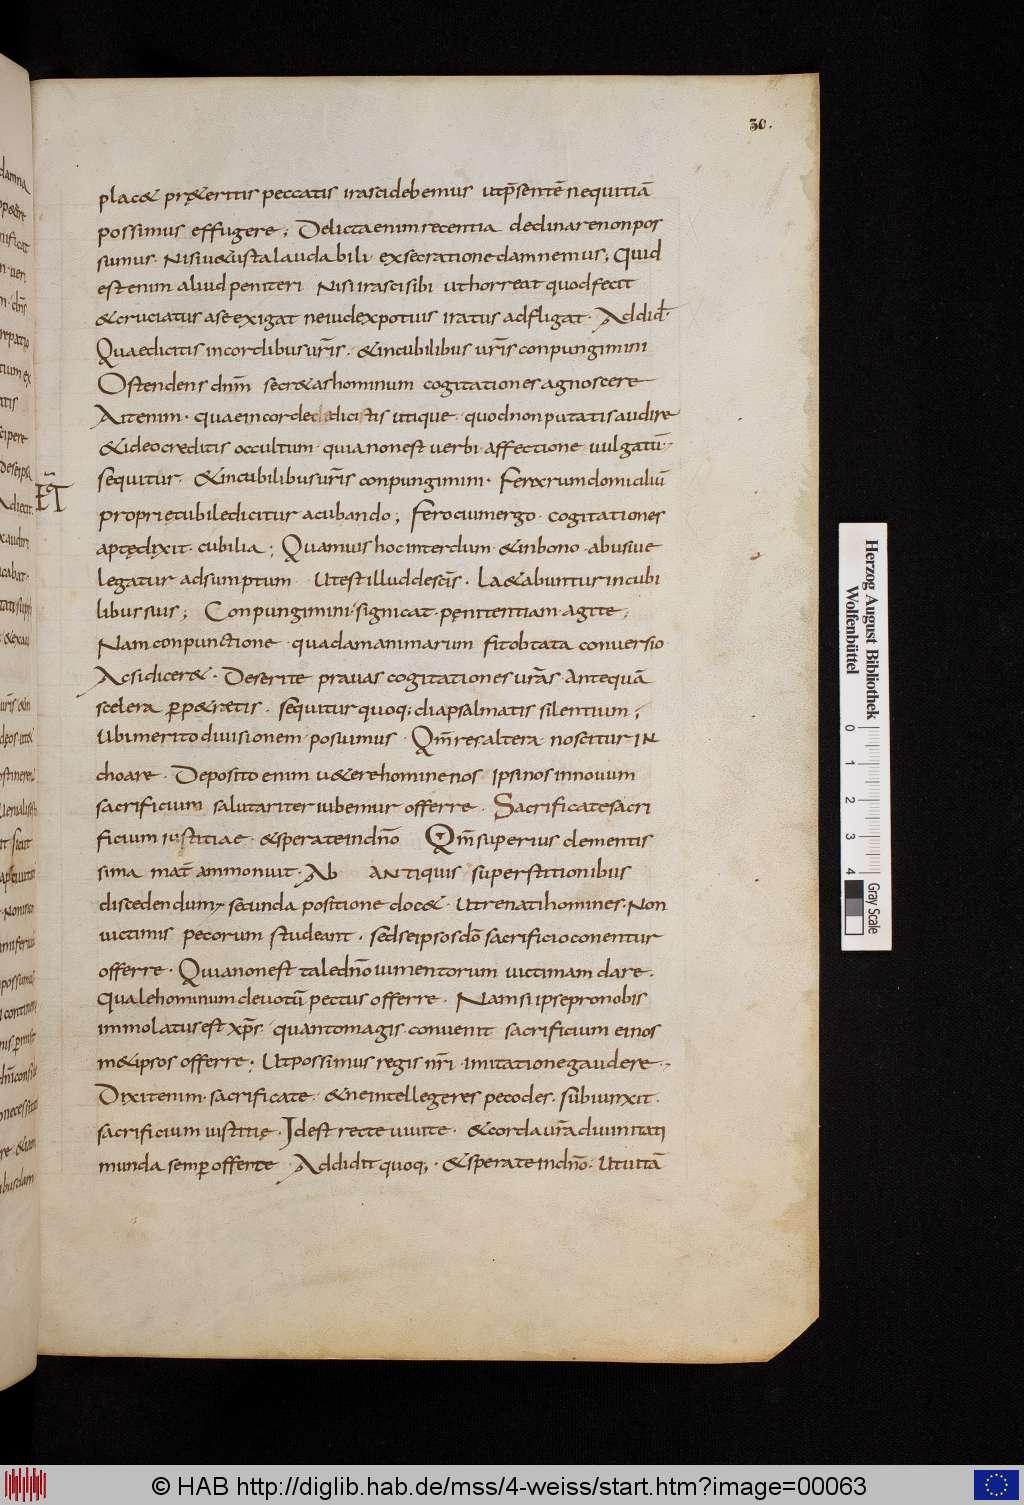 30.
plac& pr&eritis peccatis irascidebemus utp̄sentē nequitiā
possimus effugere; Delicta enim recentia declinare non pos
sumus. Nisi u&usta laudabili. exsecratione damnemus; Quid
est enim aliud peniteri Nisi irasci sibi ut horreat quod fecit
&cruciatus a se exigat ne iudex potius iratus adfligat. Addid̄.
Quae dicitis in cordibus ur̄is. &in cubilibus ur̄is conpungimini
Ostendens dnm̄ secr&as hominum cogitationes agnoscere
Ait enim. quae in corde dicitis utique. quod non putatis audire
&ideo creditis occultum. quia non est uerbi affectione uulgatū.
sequitur. &in cubilibus ur̄is conpungimini. Ferarum domiciliū
proprie cubile dicitur a cubando; Ferocium ergo cogitationes
aptę dixit. cubilia; Quamuis hoc interdum &in bono abusiue
legatur adsumptum Ut est illud de sc̄is. La&abuntur in cubi
libus suis; Conpungimini. signicat. pęnitentiam agite;
Nam conpunctione quadam animarum fit obtata conuersio
Ac si dicer&. Deserite prauas cogitationes ur̄as. Antequā
scelera perp&retis. sequitur quoq; diapsalmatis silentium;
Ubi merito diuisionem posuimus. Qm̄ res altera noscitur IN
choare. Deposito enim u&ere homine nos ipsi nos in nouum
sacrificium salutariter iubemur offerre. Sacrificate sacri
ficium iustitiae &sperate in dn̄o Qm̄ superius clementis
sima mat̄ ammonuit. Ab ANTIQUIS superstitionibus
discedendum, secunda positione doc&. Ut renati homines. Non
uictimis pecorum studeant. sed se ipsos dō sacrificio conentur
offerre. Quia non est tale dn̄o iumentorum uictimam dare.
Quale hominum deuotū pectus offerre. Nam si ipse pro nobis
immolatus est xp̄s. quanto magis conuenit sacrificium ei nos
m&ipsos offerre; Ut possimus regis nr̄i imitatione gaudere.
Dixit enim. sacrificate. &ne intellegeres pecodes. subiunxit.
sacrificium iustitię. Id est recte uiuite. &corda ur̄a diuinitati
munda semper offerte Addidit quoq;. &sperate in dn̄o. Ut uitā
ET
Herzog August Bibliothek
Wolfenbüttel
0 1 2 3 4
Gray Scale
© HAB http://diglib.hab.de/mss/4-weiss/start.htm?image=00063